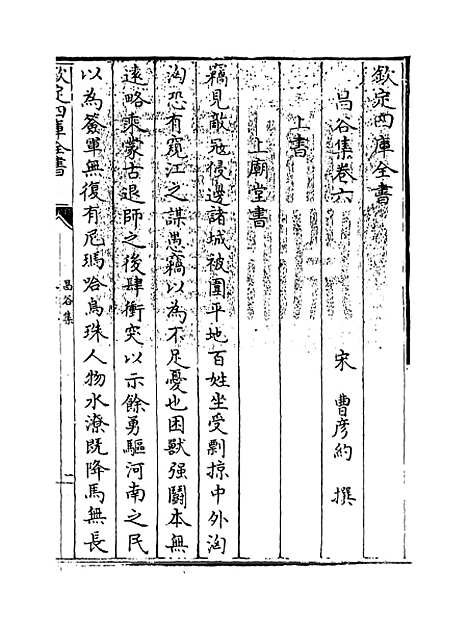 欽定四庫全書
昌谷集卷六
宋 曹彥約 撰
上書
上廟堂書
竊見敵冦侵邊諸城被圍平地百姓坐受剽掠中外洶
洶恐有窺江之謀愚竊以為不足憂也困獸强鬭本無
遠略乘蒙古退師之後肆衝突以示餘勇驅河南之民
以為簽軍無復有尼瑪哈烏珠人物水潦既降馬無長
欽定四庫全書
昌谷集
一